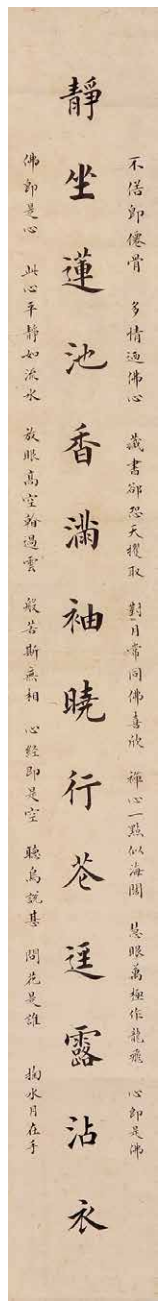 不俗即僊骨 多情迺佛心 藏書卻怨天攫取 對月常同佛喜欣 禅心一點似海闊 慧眼萬極作龍飛 心即是佛
靜坐蓮池香滿袖曉行苍逕露沾衣
佛即是心 此心平靜如流水 放眼高空翰過雲 般若斯無相 心经即是空 聽鳥說甚 問花是誰 掬水月在手